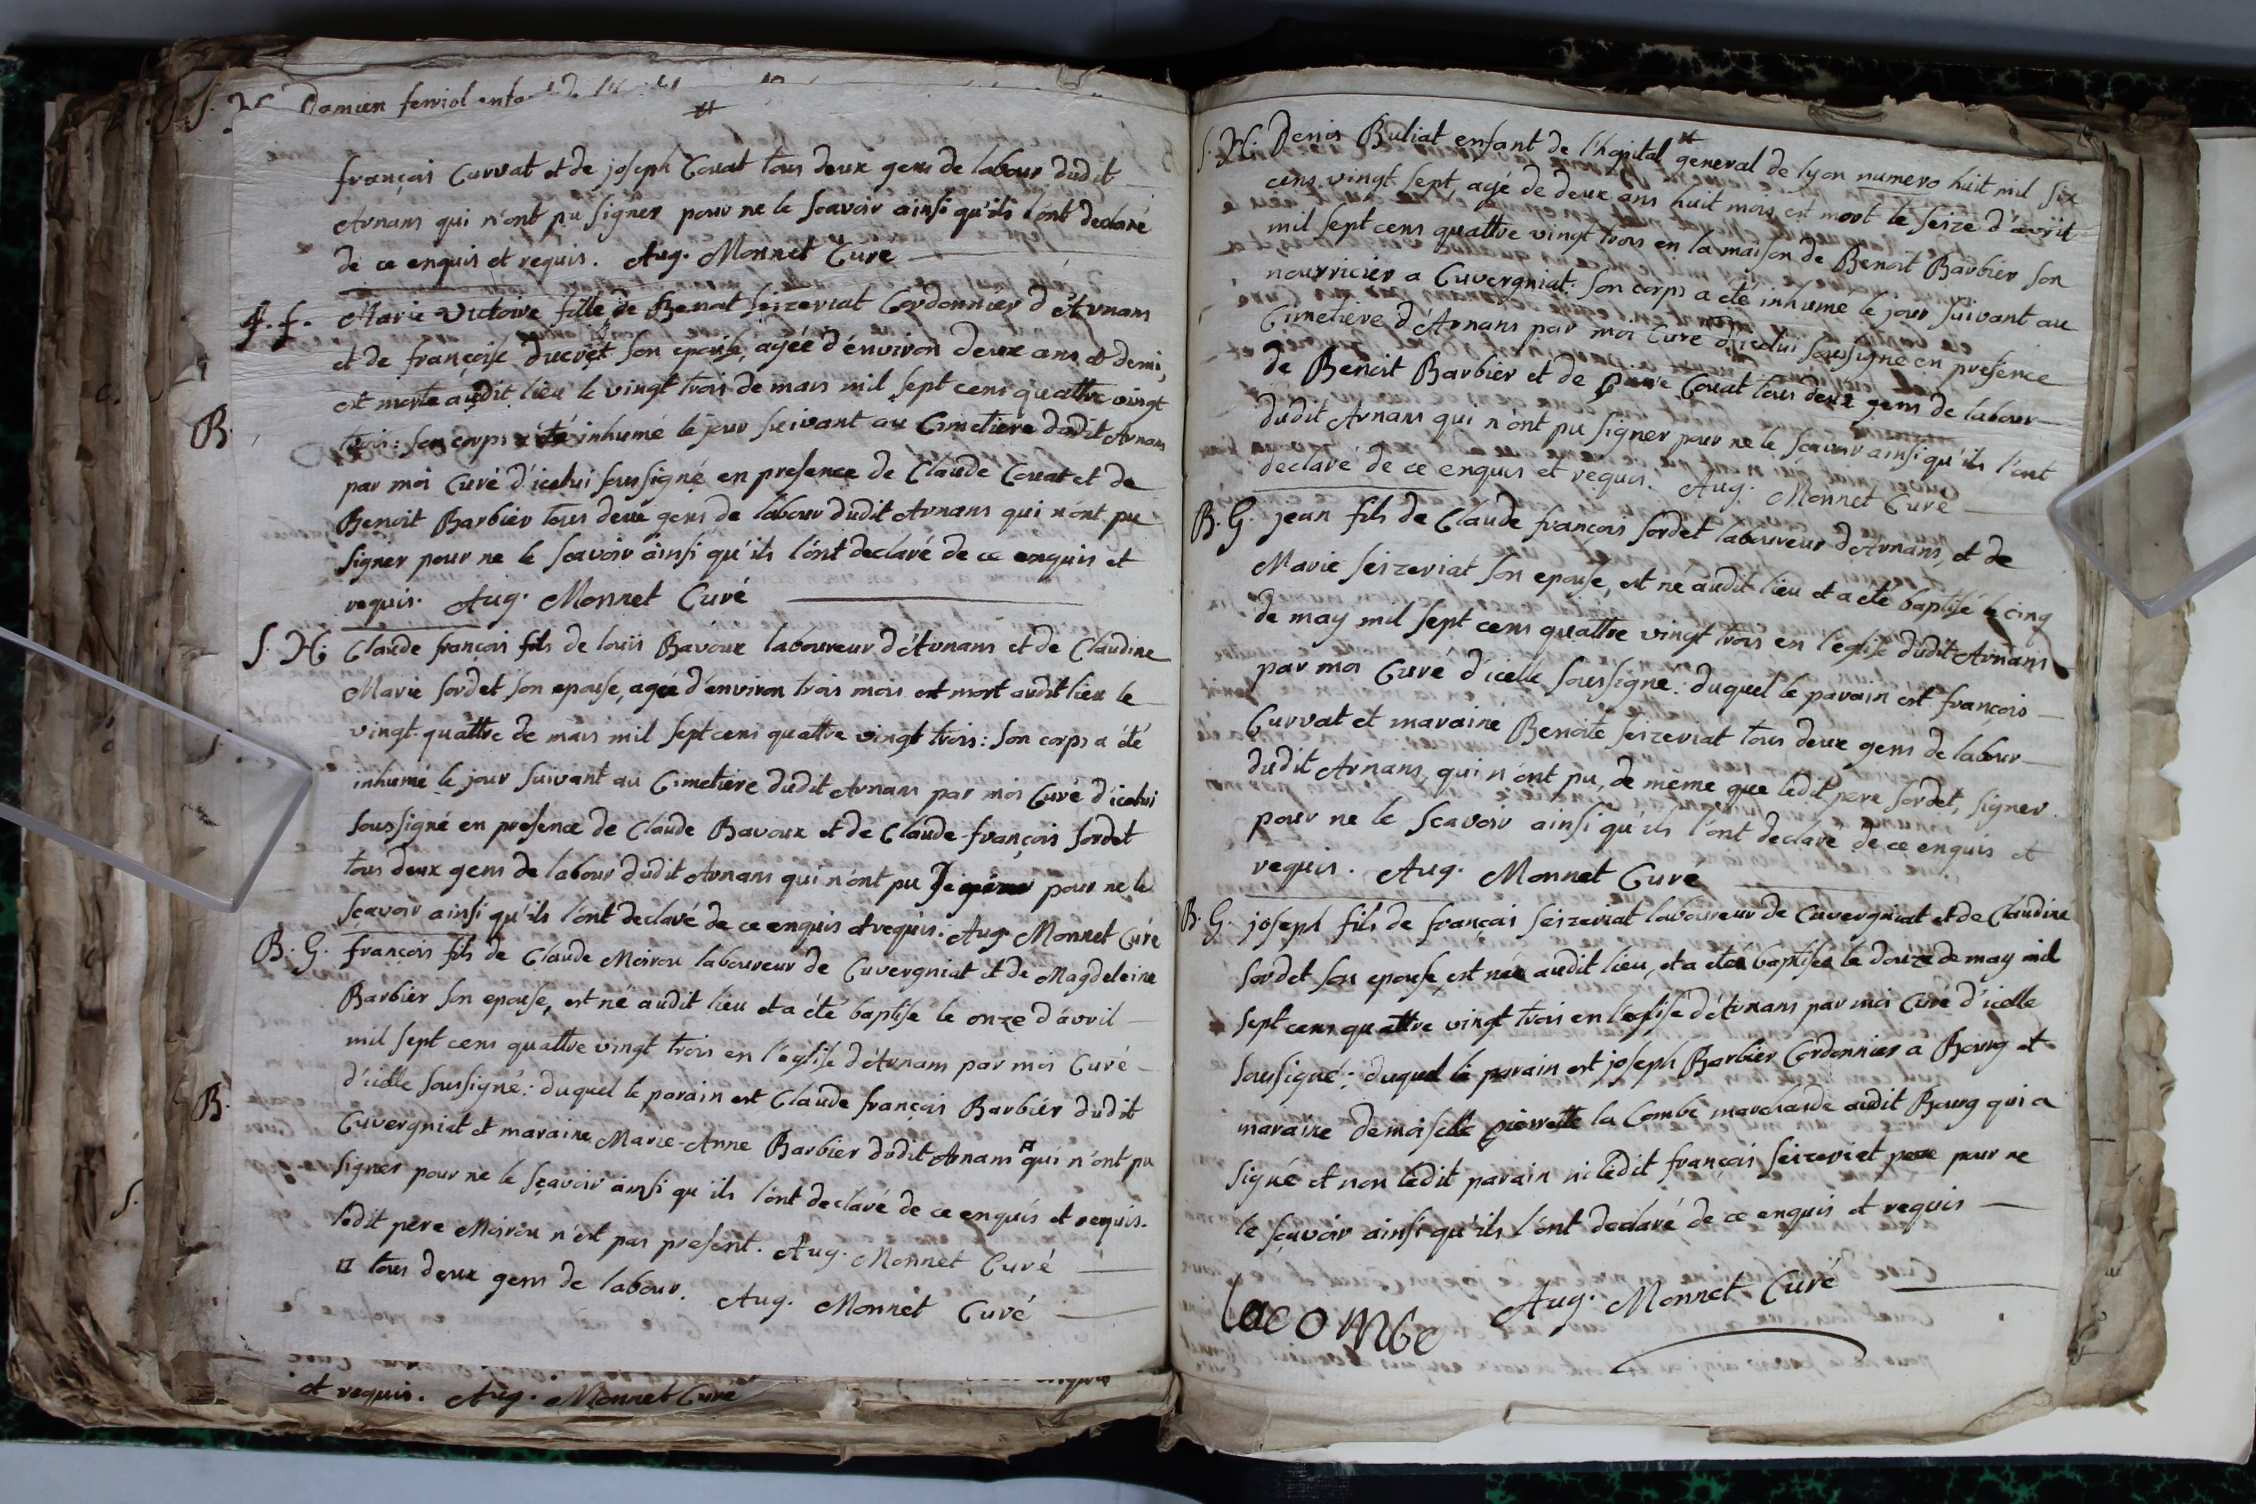 S. H. Damien ferriol
françois Curvat et de joseph Couat tous deux gens de labour dudit
Arnans qui n'ont pu signer pour ne le scavoir ainsi qu'ils l'ont declaré
de ce enquis et requis. Aug. Monnet Curé
S. f. Marie Victoire fille de Benoit Seizeriat Cordonnier d'Arnans
et de françoise Ducret son epouse, agée d'environ deux ans et demi,
est morte audit lieu le vingt trois de mars mil sept cens quattre vingt
B.
trois: son corps a été inhumé le jour suivant au Cimetiere dudit Arnans
par moi Curé d'icelui soussigné en presence de Claude Couat et de
Benoit Barbier tous deux gens de labour dudit Arnans qui n'ont pu
signer pour ne le scavoir ainsi qu'ils l'ont declaré de ce enquis et
requis. Aug. Monnet Curé
S. H. Claude françois fils de louis Bavoux laboureur d'Arnans et de Claudine
Marie Sordet son epouse, agée d'environ trois mois est mort audit lieu le
vingt-quattre de mars mil sept cens quattre vingt trois: son corps a été
inhumé le jour suivant au Cimetiere dudit Arnans par moi Curé d'icelui
soussigné en presence de Claude Bavoux et de Claude-françois Sordet
tous deux gens de labour dudit Arnans qui n'ont pu signer pour ne le
sçavoir ainsi qu'ils l'ont declaré de ce enquis et requis. Aug. Monnet Curé
B. G. françois fils de Claude Moiroux laboureur de Cuvergniat et de Magdeleine
Barbier son epouse, est né audit lieu et a été baptisé le onze d'avril
mil sept cens quattre vingt trois en l'église d'Arnans par moi Curé
d'icelle soussigné: duquel le parain est Claude françois Barbier dudit
B.
Cuvergniat et maraine Marie-Anne Barbier dudit Arnans ¤ qui n'ont pu
signer pour ne le sçavoir ainsi qu'ils l'ont declaré de ce enquis et requis.
ledit pere Moiroux n'est pas present. Aug. Monnet Curé
¤ tous deux gens de labour. Aug. Monnet Curé
et requis. Aug. Monnet Curé
S. H. Denis Buliat enfant de l'hopital general de lyon numero huit mil six
cens vingt sept, agé de deux ans huit mois est mort le seize d'avril
mil sept cens quattre vingt trois en la maison de Benoit Barbier son
nourricier a Cuvergniat. son corps a eté inhumé le jour suivant au
Cimetiere d'Arnans par moi Curé d'icelui soussigné en presence
de Benoit Barbier et de Couat tous deux gens de labour
dudit Arnans qui n'ont pu signer pour ne le sçavoir ainsi qu'ils l'ont
declaré de ce enquis et requis. Aug. Monnet Curé
B. G. jean fils de Claude françois Sordet laboureur d'Arnans, et de
Marie Seizeriat son epouse, est né audit lieu et a eté baptisé le cinq
de may mil sept cens quattre vingt trois en l'église dudit Arnans
par moi Curé d'icelle soussigné: duquel le parain est françois
Curvat et maraine Benoite Seizeriat tous deux gens de labour
dudit Arnans, qui n'ont pu, de même que ledit pere Sordet, signer
pour ne le scavoir ainsi qu'ils l'ont declaré de ce enquis et
requis. Aug. Monnet Curé
B. G. joseph fils de françois Seizeriat laboureur de Cuvergniat et de Claudine
Sordet son epouse est née audit lieu, et a eté baptisée le douze de may mil
sept cens quattre vingt trois en l'église d'Arnans par moi Curé d'icelle
soussigné; duquel le parain est joseph Barbier Cordonnier a Bourg et
maraine demoiselle pierrette la Combe marchande audit Bourg qui a
signé et non ledit parain ni ledit françois Seizeriat pere pour ne
le sçavoir ainsi qu'ils l'ont declaré de ce enquis et requis
lacombe Aug. Monnet Curé